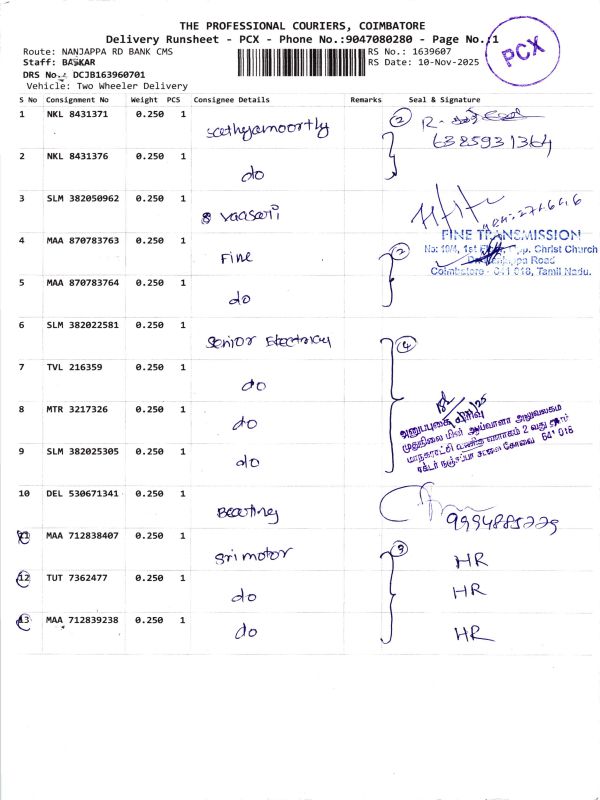 THE PROFESSIONAL COURIERS, COIMBATORE
Delivery Runsheet - PCX - Phone No.:9047080280 - Page No.:1
PCX
Route: NANJAPPA RD BANK CMS
RS No.: 1639607
Staff: BASKAR
RS Date: 10-Nov-2025
DRS No.: DCJB163960701
Vehicle: Two Wheeler Delivery
S No Consignment No Weight PCS Consignee Details Remarks Seal & Signature
1 NKL 8431371 0.250 1 sathyamoorthy 2 R-
6385931364
2 NKL 8431376 0.250 1 do
3 SLM 382050962 0.250 1 vaasari
4 MAA 870783763 0.250 1 Fine 2
FINE TRANSMISSION
No: 10/4, 1st Opp. Christ Church
Road
Coimbatore - 641 018, Tamil Nadu.
5 MAA 870783764 0.250 1 do
6 SLM 382022581 0.250 1 senior Electricity 4
7 TVL 216359 0.250 1 do
8 MTR 3217326 0.250 1 do
அனுப்புகை பிரிவு
முதுநிலை மின் ஆய்வாளர் அலுவலகம்
மாநகராட்சி வணிக வளாகம் 2 வது தளம்
டாக்டர் நஞ்சப்பா சாலை கோவை 641 018
9 SLM 382025305 0.250 1 do
10 DEL 530671341 0.250 1 Bearing
9994885229
11 MAA 712838407 0.250 1 Sri motor 3 HR
12 TUT 7362477 0.250 1 do HR
13 MAA 712839238 0.250 1 do HR